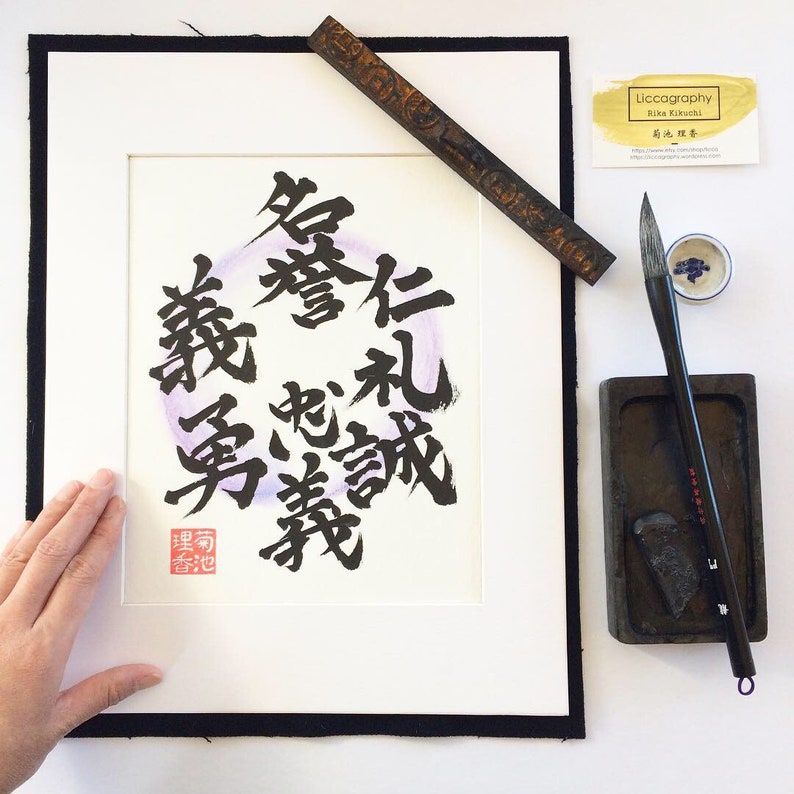 名誉
仁
礼
誠
忠義
義
勇
菊池
理香
Liccagraphy
Rika Kikuchi
菊池 理香
https://www.etsy.com/shop/licca
https://liccagraphy.wordpress.com
龍門